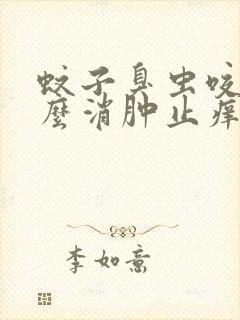 蚊子臭虫咬
麼消肿止痒
李如意